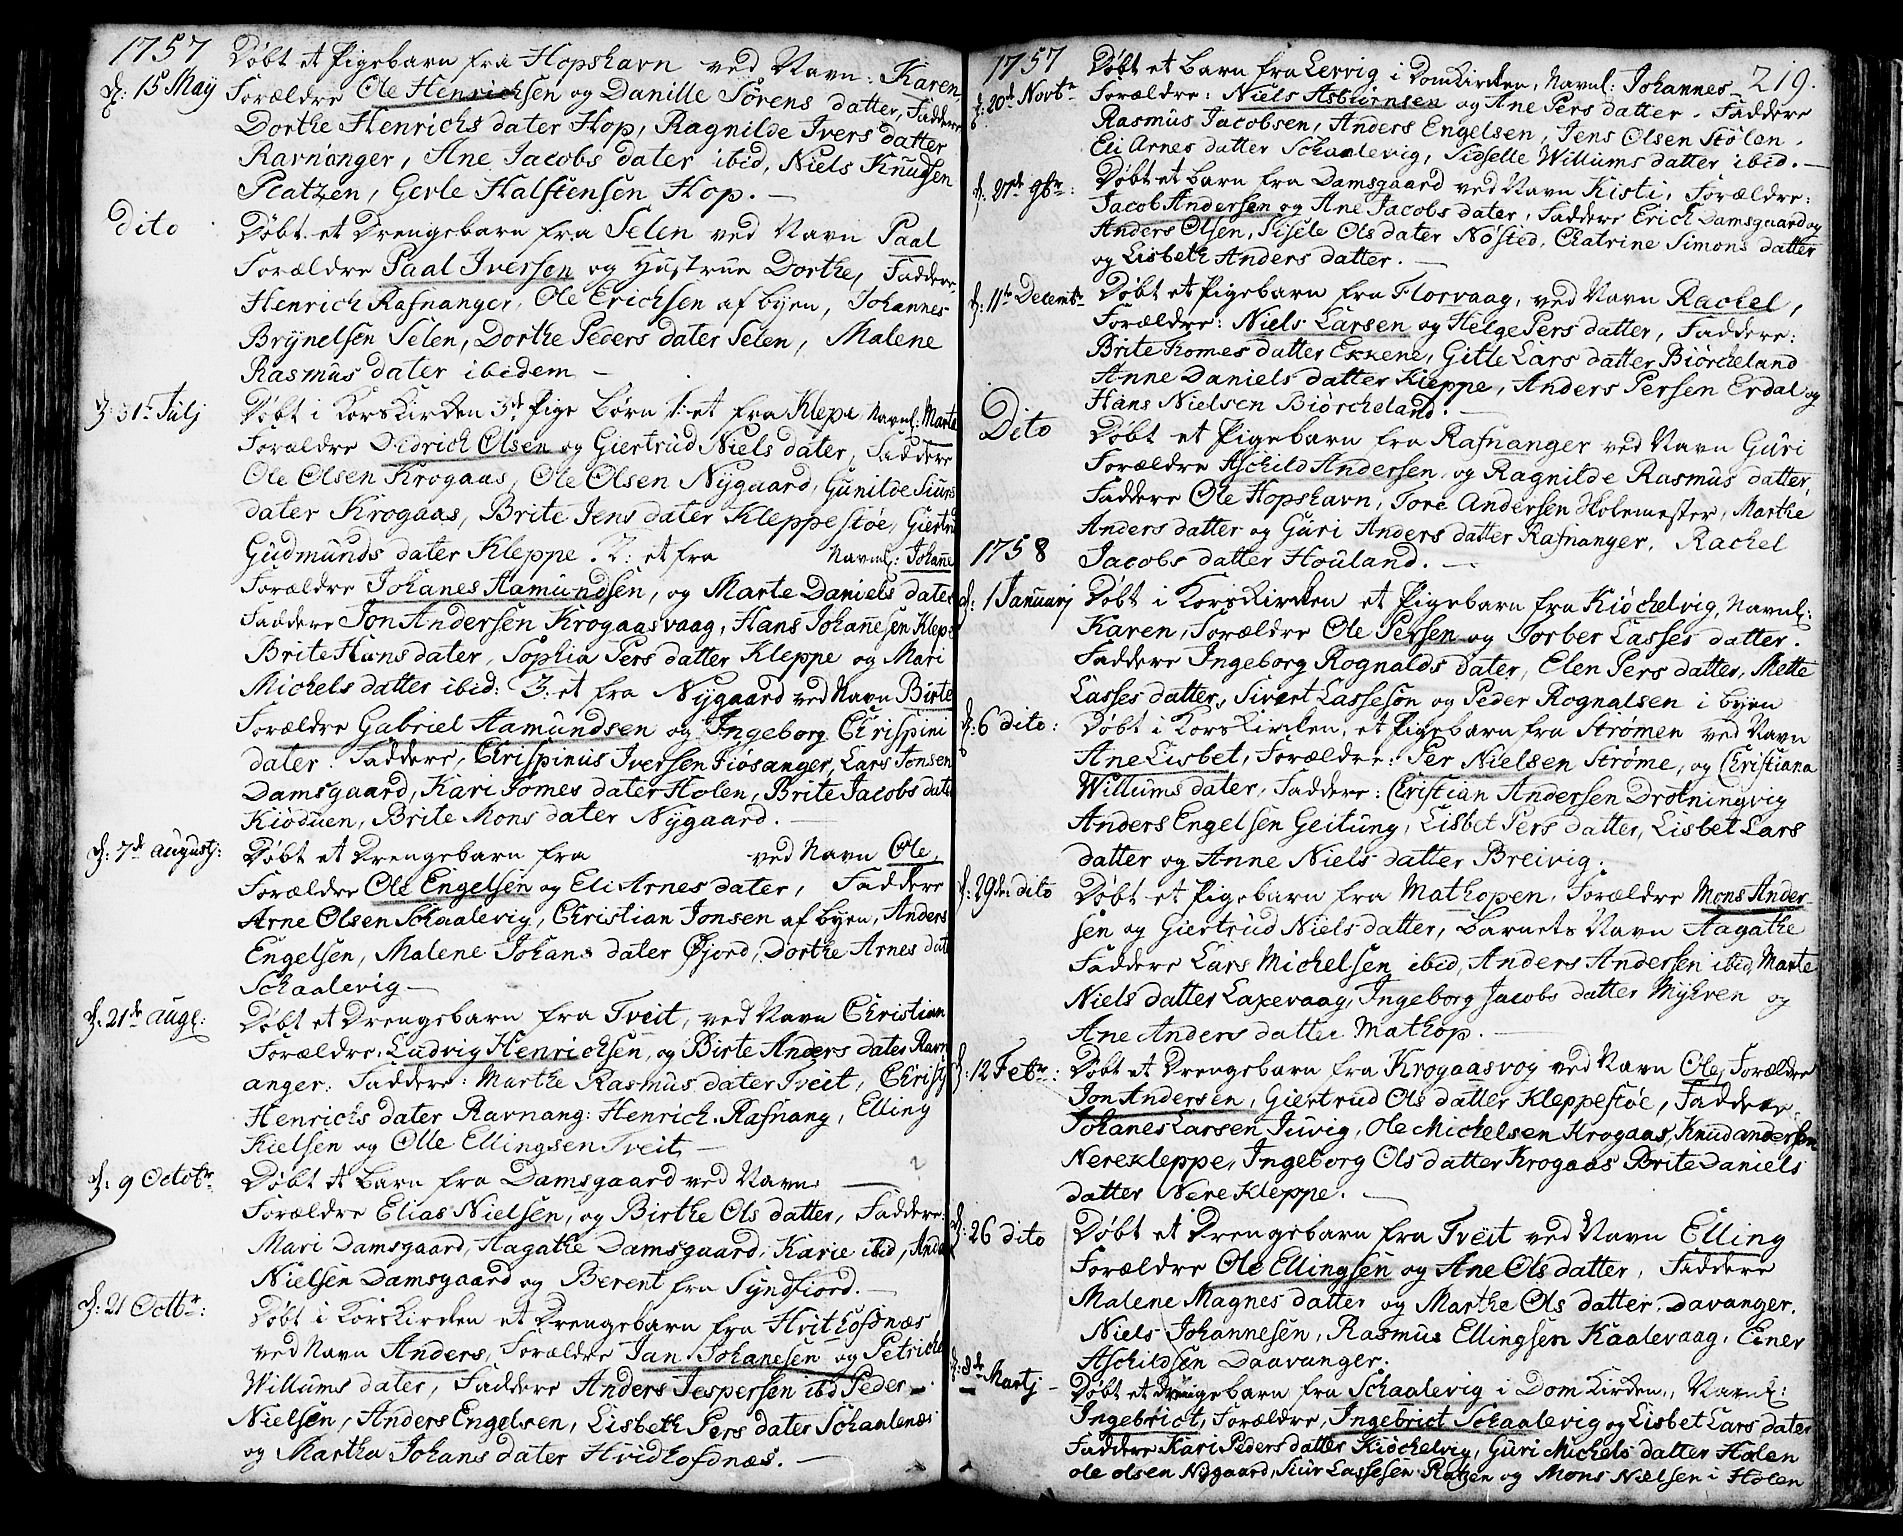 1757
d: 15 May
Døbt et Pigebarn fra Hopshavn ved Navn: Karen
Forældre Ole Henrichsen og Danille Sørens datter, Faddere
Dorthe Henrichs dater Hop, Ragnilde Ivers datter
Ravnanger, Ane Jacobs dater ibid, Niels Knudsen
Platzen, Gerle Halstensen Hop. —
Dito
Døbt et Drengebarn fra Selen ved Navn Paal
Forældre Paal Iversen og Hustrue Dorthe, Faddere,
Henrich Rafnanger, Ole Erichsen af byen, Johannes
Brynelsen Selen, Dorthe Peders dater Selen, Malene
Rasmus dater ibedem —
d: 31t Julj
Døbt i Korskirken 3d Pige Børn 1: et fra Klepe Navnl: Marta
Forældre Didrich Olsen og Giertrud Niels dater, Faddere
Ole Olsen Krogaas, Ole Olsen Nygaard, Gunilde Siurs
dater Krogaas, Brite Jens dater Kleppestøe, Giertru
Gudmunds dater Kleppe. 2: et fra Navnl: Johañe
Forældre Johanes Aamundsen, og Marte Daniels dater
Faddere Jon Andersen Krogaasvaag, Hans Johañesen Klepe
Brite Hans dater, Sophia Pers datter Kleppe og Mari
Michels datter ibid: 3: et fra Nygaard ved Navn Birte
Forældre Gabriel Aamundsen og Ingeborg Chrispini
dater. Faddere, Chrispinus Iversen Fiøsanger, Lars Jonsen
Damsgaard, Kari Tomes dater Holen, Brite Jacobs date
Kioduen, Brite Mons dater Nygaard. —
d: 7de augustj:
Døbt et Drengebarn fra ved Navn Ole,
Forældre Ole Engelsen og Eli Arnes dater, Faddere
Arne Olsen Schaalevig, Christian Jonsen af byen, Anders
Engelsen, Malene Johans dater Øjord, Dorthe Arnes dat
Schaalevig —
d: 21de augt:
Døbt et Drengebarn fra Tveit, ved Navn Christian
Forældre: Ludvig Henrichsen, og Birte Anders dater Ravn
anger: Faddere: Marthe Rasmus dater Tveit, Christj
Henrichs dater Ravnang: Henrich Rafnang, Elling
Kielsen og Olle Ellingsen Tveit —
d: 9 Octobr
Døbt et Barn fra Damsgaard ved Navn: —
Forældre Elias Nielsen, og Birthe Ols datter, Faddere:
Mari Damsgaard, Aagathe Damsgaard, Karie ibid, Anders
Nielsen Damsgaard og Berent fra Syndfiord. —
d: 21 Octbr:
Døbt i Korskirken et Drengebarn fra Hvithofdnæs
ved Navn Anders, Forældre Jan Johanesen og Petriche
Willums dater, Faddere Anders Jespersen ibd Peder
Nielsen, Anders Engelsen, Lisbeth Pers dater Schaalenæs
og Martha Johans dater Hvidhofdnæs. —
1757
219.
d: 20d Novbr
Døbt et barn fra Lervig i Domkirken, Navnl: Johannes
Forældre: Niels Asbiørnsen og Ane Pers datter. Faddere
Rasmus Jacobsen, Anders Engelsen, Jens Olsen Stølen.
Eli Arnes datter Schaalevig, Sidselle Willums datter ibid. —
d: 27de 9br:
Døbt et barn fra Damsgaard ved Navn Kisti, Forældre:
Jacob Andersen og Ane Jacobs dater, Faddere Erich Damsgaard og
Anders Olsen, Sisele Ols dater Nøsted, Chatrine Simons datter
og Lisbeth Anders datter. —
d: 11te Decembr
Døbt et Pigebarn fra Florvaag, ved Navn Rachel,
Forældre: Niels Larsen og Helge Pers datter, Faddere:
Brite Tomes datter Ekkene, Gitle Lars datter Biørcheland
Anne Daniels datter Kleppe, Anders Persen Erdal og
Hans Nielsen Biørcheland. —
Dito
Døbt et Pigebarn fra Rafnanger ved Navn Guri
Forældre Aschild Andersen, og Ragnilde Rasmus datter,
Faddere Ole Hopshavn, Tore Andersen Skolemester, Marthe
Anders datter og Guri Anders datter Rafnanger, Rachel
Jacobs datter Houland. —
1758
d: 1 Januarj
Døbt i Korskirken et Pigebarn fra Kiøchelvig, Navnl:
Karen, Forældre Ole Persen og Torber Lasses datter.
Faddere Ingeborg Rognalds dater, Elen Pers datter, Mette
Lasses datter, Sivert Lasseson og Peder Rognalsen i byen
d: 6 dito:
Døbt i Korskirken, et Pigebarn fra Strømen ved Navn
Ane Lisbet, Forældre: Per Nielsen Strøme, og Christiana
Willums dater, Faddere: Christian Andersen Drotningvig
Anders Engelsen Geitung, Lisbet Pers datter, Lisbet Lars
datter og Anne Niels datter Breivig.
d: 29de dito
Døbt et Pigebarn fra Mathopen, Forældre Mons Ander-
sen og Giertrud Niels datter, Barnets Navn Aagathe
Faddere Lars Michelsen ibid, Anders Andersen ibid, Marte
Niels datter Laxevaag, Ingeborg Jacobs datter Mykven og
Ane Anders datter Mathop. —
d: 12 Febr:
Døbt et Drengebarn fra Krogaasvog ved Navn Ole, Forældre
Jon Andersen, Giertrud Ols datter Kleppestøe, Faddere
Johanes Larsen Juvig, Ole Michelsen Krogaas, Knud andersen
Nerekleppe, Ingeborg Ols datter Krogaas Brite Daniels
datter Nere Kleppe. —
d: 26 dito
Døbt et Drengebarn fra Tveit ved Navn Elling
Forældre Ole Ellingsen og Ane Ols datter, Faddere
Malene Magnes datter og Marthe Ols datter. Davanger.
Niels Johannesen, Rasmus Ellingsen Kaalevaag, Einer
Aschildsen Daavanger.
d: 8de Martj —
Døbt et Drengebarn fra Schaalevig i Dom Kirken, Navnl:
Ingebrict, Forældre, Ingebrict Schaalevig og Lisbet Lars dater
Faddere Kari Peders datter Kiøchelvig, Guri Michels datter Holen
ole olsen Nygaard, Siur Lassesen Platzen og Mons Nielsen i Holen